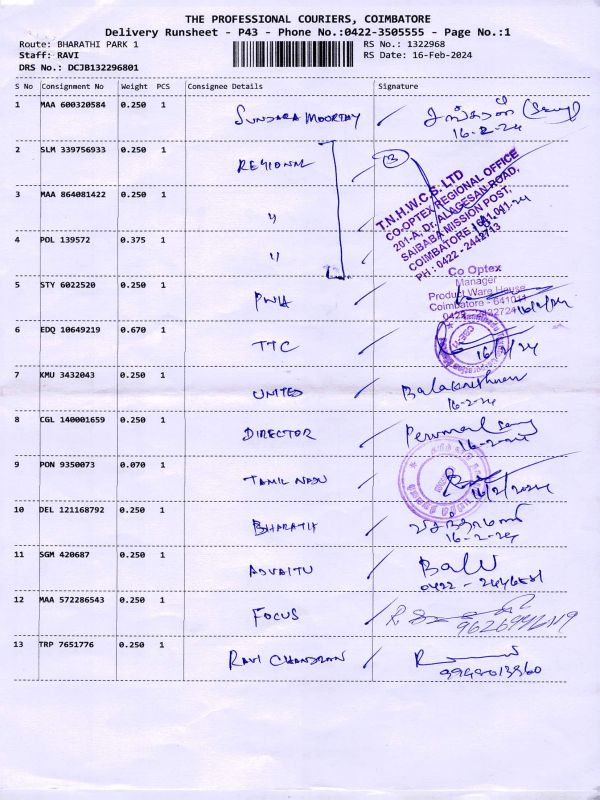 THE PROFESSIONAL COURIERS, COIMBATORE
Delivery Runsheet - P43 - Phone No.:0422-3505555 - Page No.:1
Route: BHARATHI PARK 1 RS No.: 1322968
Staff: RAVI RS Date: 16-Feb-2024
DRS No.: DCJB132296801
S No Consignment No Weight PCS Consignee Details Signature
1 MAA 600320584 0.250 1 SUNDARA MOORTHY
16-2-24
2 SLM 339756933 0.250 1 REGIONAL 13
T.N.H.W.C.S. LTD
CO-OPTEX REGIONAL OFFICE
201-A, Dr. ALAGESAN ROAD,
SAIBABA MISSION POST,
COIMBATORE - 641 011.
PH : 0422 - 2442713
3 MAA 864081422 0.250 1 "
4 POL 139572 0.375 1 "
5 STY 6022520 0.250 1 PWH
Co Optex
Manager
Product Ware House
Coimbatore - 641011
16/2/24
6 EDQ 10649219 0.670 1 TTC
16/2/24
7 KMU 3432043 0.250 1 UNITED Balakrishnan
16-2-24
8 CGL 140001659 0.250 1 DIRECTOR Perumal
9 PON 9350073 0.070 1 TAMIL NADU
16/2/2024
10 DEL 121168792 0.250 1 BHARATH
16-2-24
11 SGM 420687 0.250 1 ADVAITU Balu
12 MAA 572286543 0.250 1 FOCUS
13 TRP 7651776 0.250 1 RAVI CHANDRAN